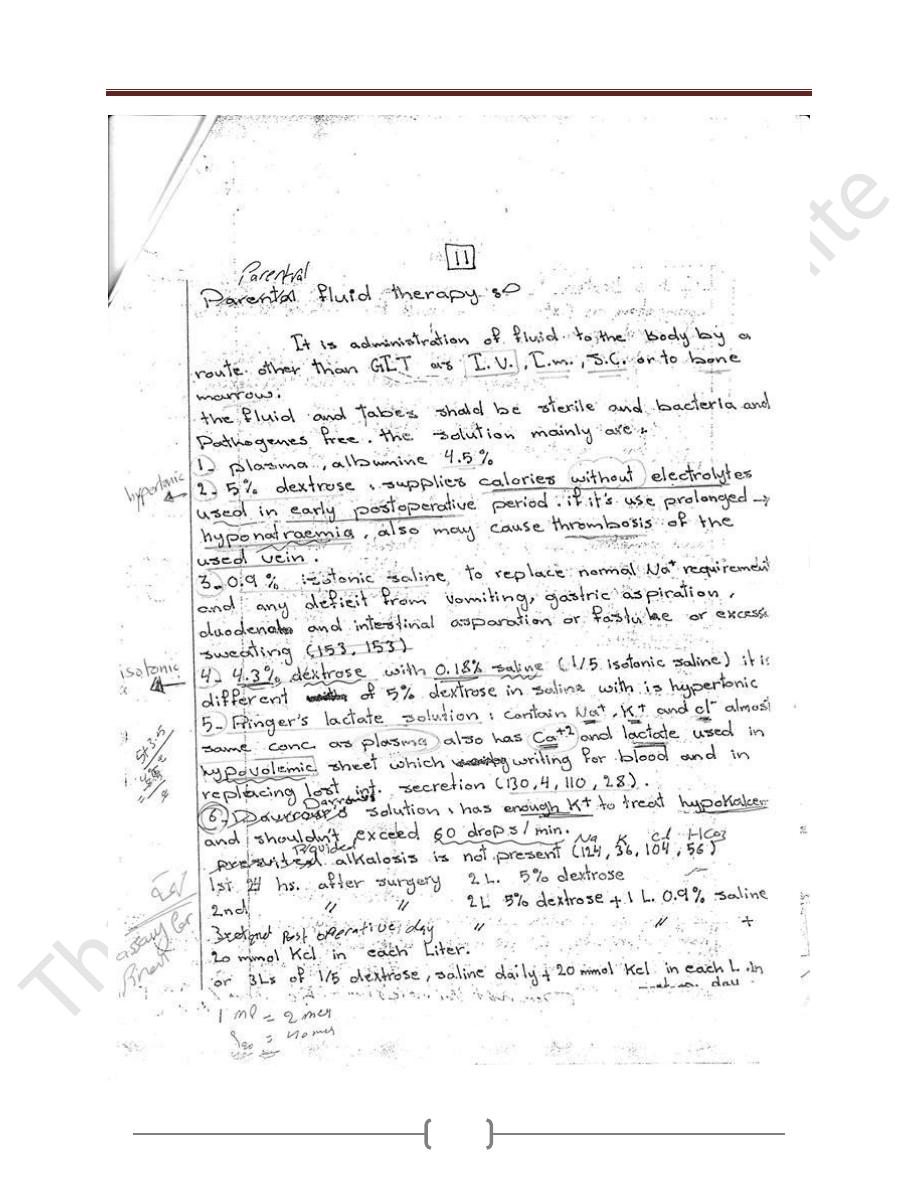 11
Parentral
Parental fluid therapy :
It is administration of fluid to the body by a
route other than GIT as I.V., I.m., S.C. or to bone
marrow.
the fluid and tabes shold be sterile and bacteria and
Pathogenes free. the solution mainly are :
1- plasma, albumine 4.5%
hypertonic
2- 5% dextrose : supplies calories without electrolytes
used in early postoperative period. if it's use prolonged →
hyponatraemia, also may cause thrombosis of the
used vein.
3- 0.9% isotonic saline, to replace normal Na+ requirement
and any deficit from vomiting, gastric aspiration,
and intestinal asparation or or excess
sweating (153, 153)
isotonic
4- 4.3% dextrose with 0.18% saline (1/5 isotonic saline) it is
different of 5% dextrose in saline with is hypertonic
5- Ringer's lactate solution : contain Na+, K+ and cl- almost
same conc as plasma also has Ca+2 and lactate used in
hypovolemic sheet which writing for blood and in
replacing lost int. secretion (130, 4, 110, 28).
Darrow's
6- solution : has enough K+ to treat
and shouldn't exceed 60 drops/min.
Provided Na K Cl HCO3
alkalosis is not present (124, 36, 104, 56)
1st 24 hs. after surgery 2 L. 5% dextrose
2nd " " 2L 5% dextrose + 1 L. 0.9% saline
Post operative day " " +
20 mmol Kcl in each Liter.
or 3Ls of 1/5 dextrose, saline daily + 20 mmol Kcl in each L. in
day
1 ml = 2 meq